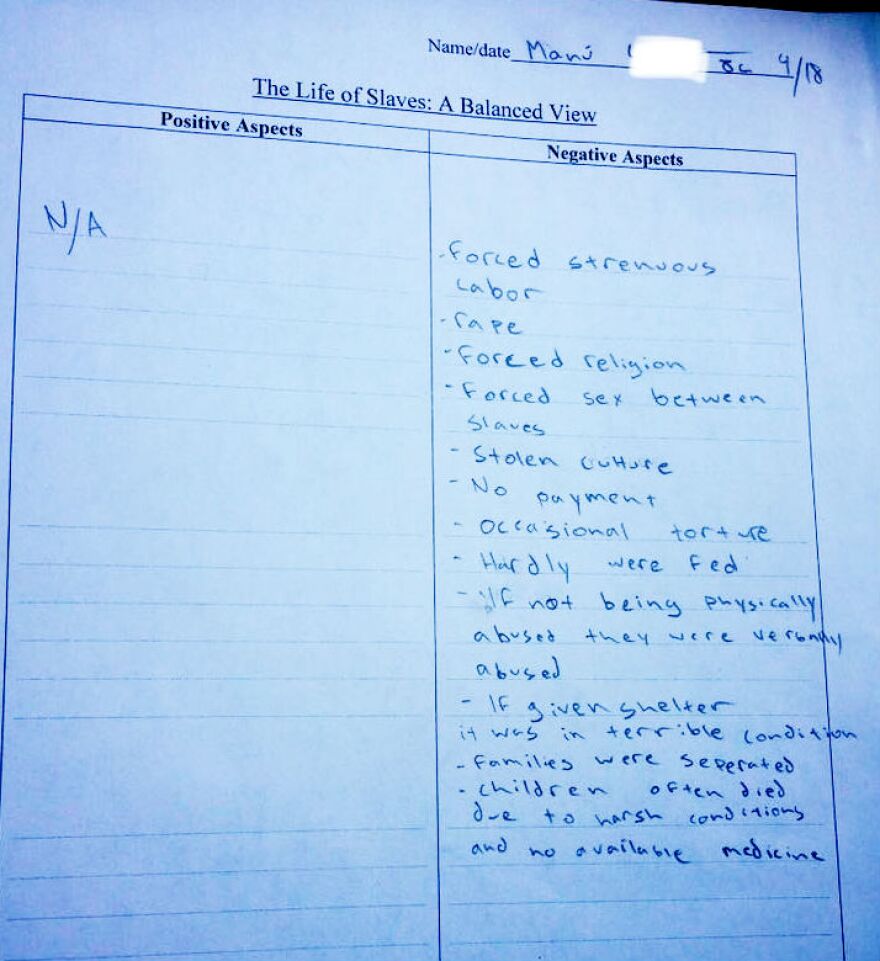 Name/date Manú 8c 4/18
The Life of Slaves: A Balanced View
Positive Aspects
Negative Aspects
N/A
- Forced strenuous
Labor
- rape
- Forced religion
- Forced sex between
slaves
- Stolen culture
- No payment
- Occasional torture
- Hardly were fed
- If not being physically
abused they were verbally
abused
- If given shelter
it was in terrible condition
- Families were seperated
- children often died
due to harsh conditions
and no available medicine